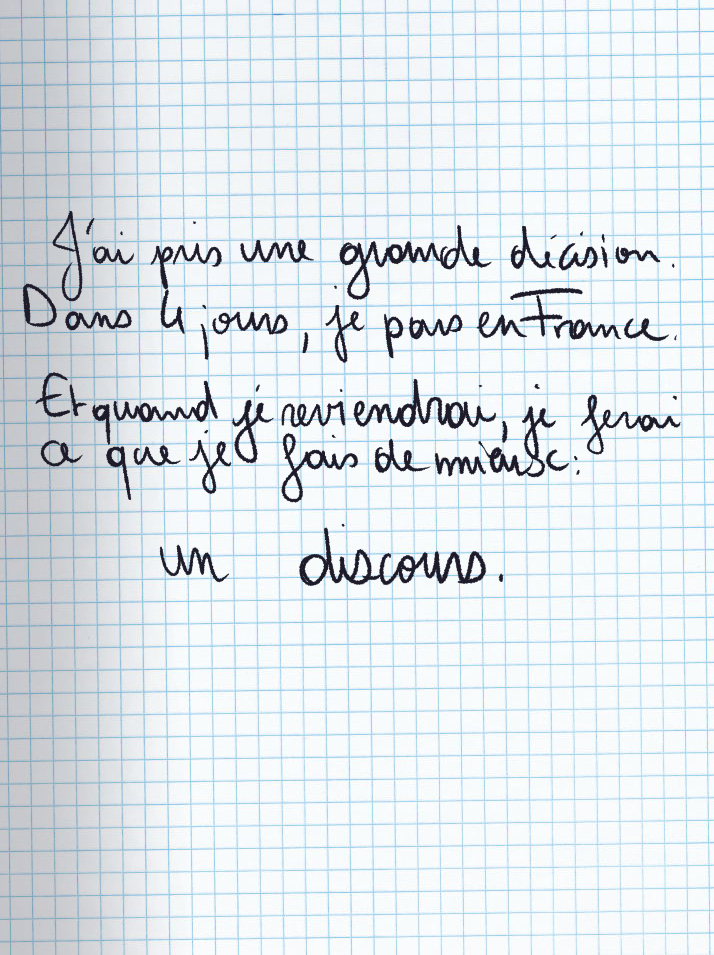 J'ai pris une grande décision.
Dans 4 jours, je pars en France.
Et quand je reviendrai, je ferai
ce que je fais de mieux:
un discours.